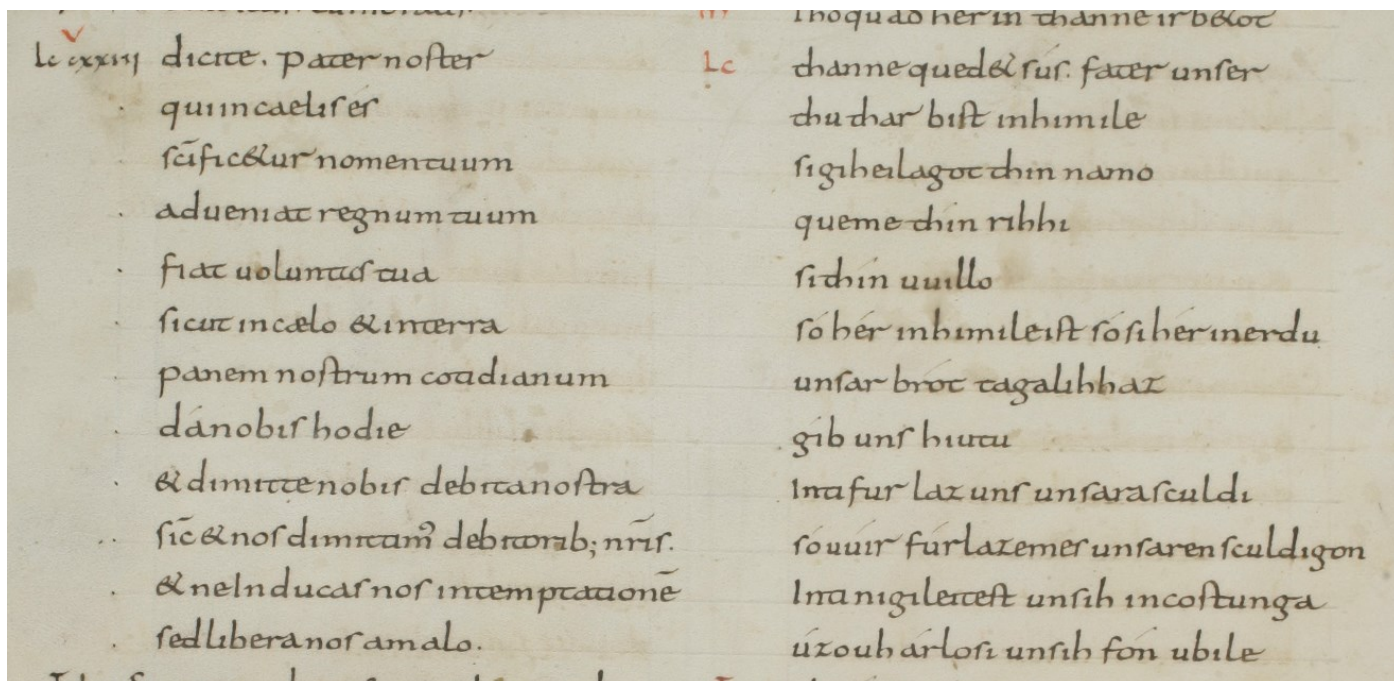 Lc cxxiii dicite. pater noster
qui in caelis és
sc̄ificetur nomen tuum
adueniat regnum tuum
fiat uoluntas tua
sicut in cælo & in terra
panem nostrum cotidianum
dá nobis hodie
& dimitte nobis debita nostra
sic̄ & nos dimittim᾽ debitorib; nr̄is.
& ne Inducas nos in temptationē
sed libera nos a malo.
thoquad her in thanne ir bet&ot
Lc thanne qued& sús. fater unser
thu thar bist in himile
si giheilagot thin namo
queme thin rihhi
si thin uuillo
só hér in himile ist só si hér in erdu
unsar brót tagalihhaz
gib uns hiutu
Inti furlaz uns unsara sculdi
só uuir furlazemes unsaren sculdigon
Inti ni gileitest unsih in costunga
úzouh árlosi unsih fón ubile